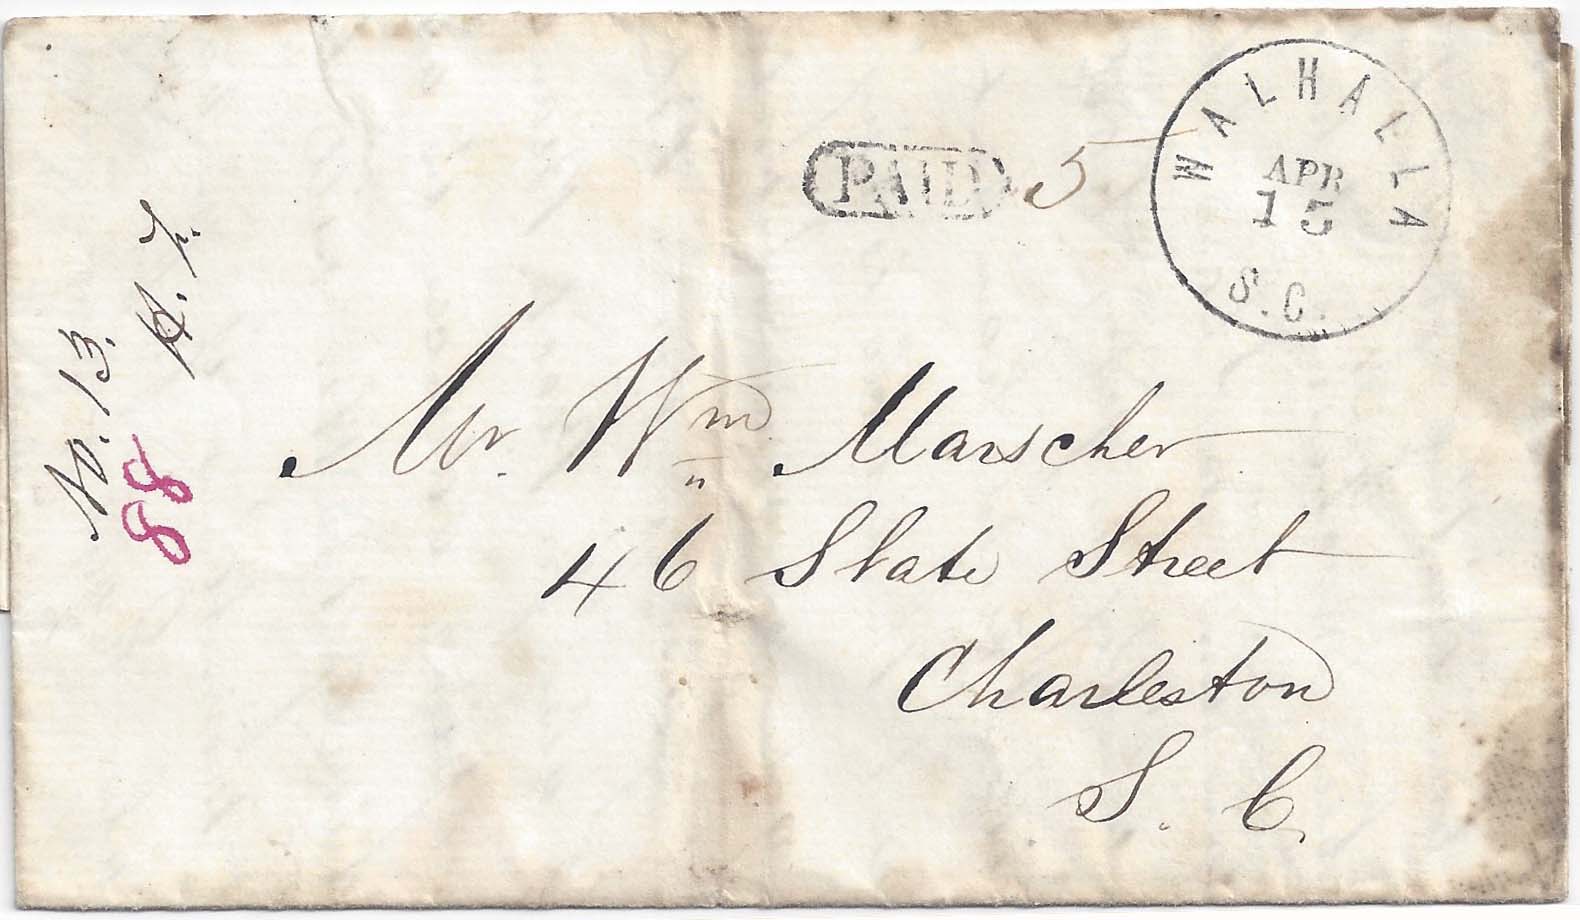 WALHALLA
APR
15
S.C.
PAID 5
Mr. Wm Marscher
46 State Street
Charleston
S. C.
No. 13.
88